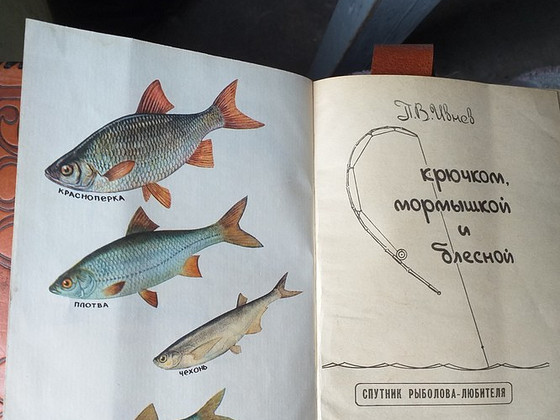 КРАСНОПЕРКА
ПЛОТВА
ЧЕХОНЬ
П.В. Ивнев
крючком,
мормышкой
и
блесной
СПУТНИК РЫБОЛОВА-ЛЮБИТЕЛЯ